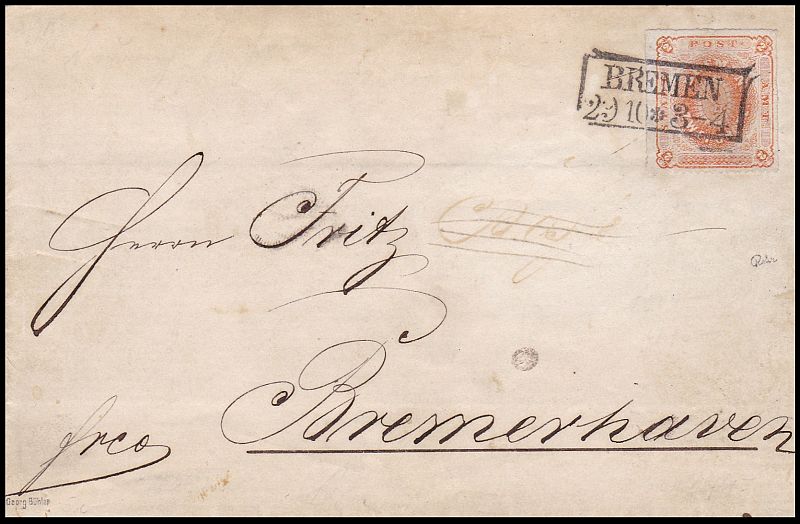 POST
AMT
BREMEN
29 10 * 3-4
Herrn Fritz
Bremerhaven
frco
Georg Bühler